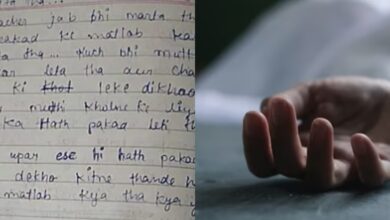 jab bhi marta th
pakad ke matlab ka
tha... kuch bhi mutt
leta tha aur cha
ki khot leke dikhao
muthi kholne ke liy
ka Hath pakad leti
upar ese hi hath pakad
dekho kitne thande h
matlab kya tha kya